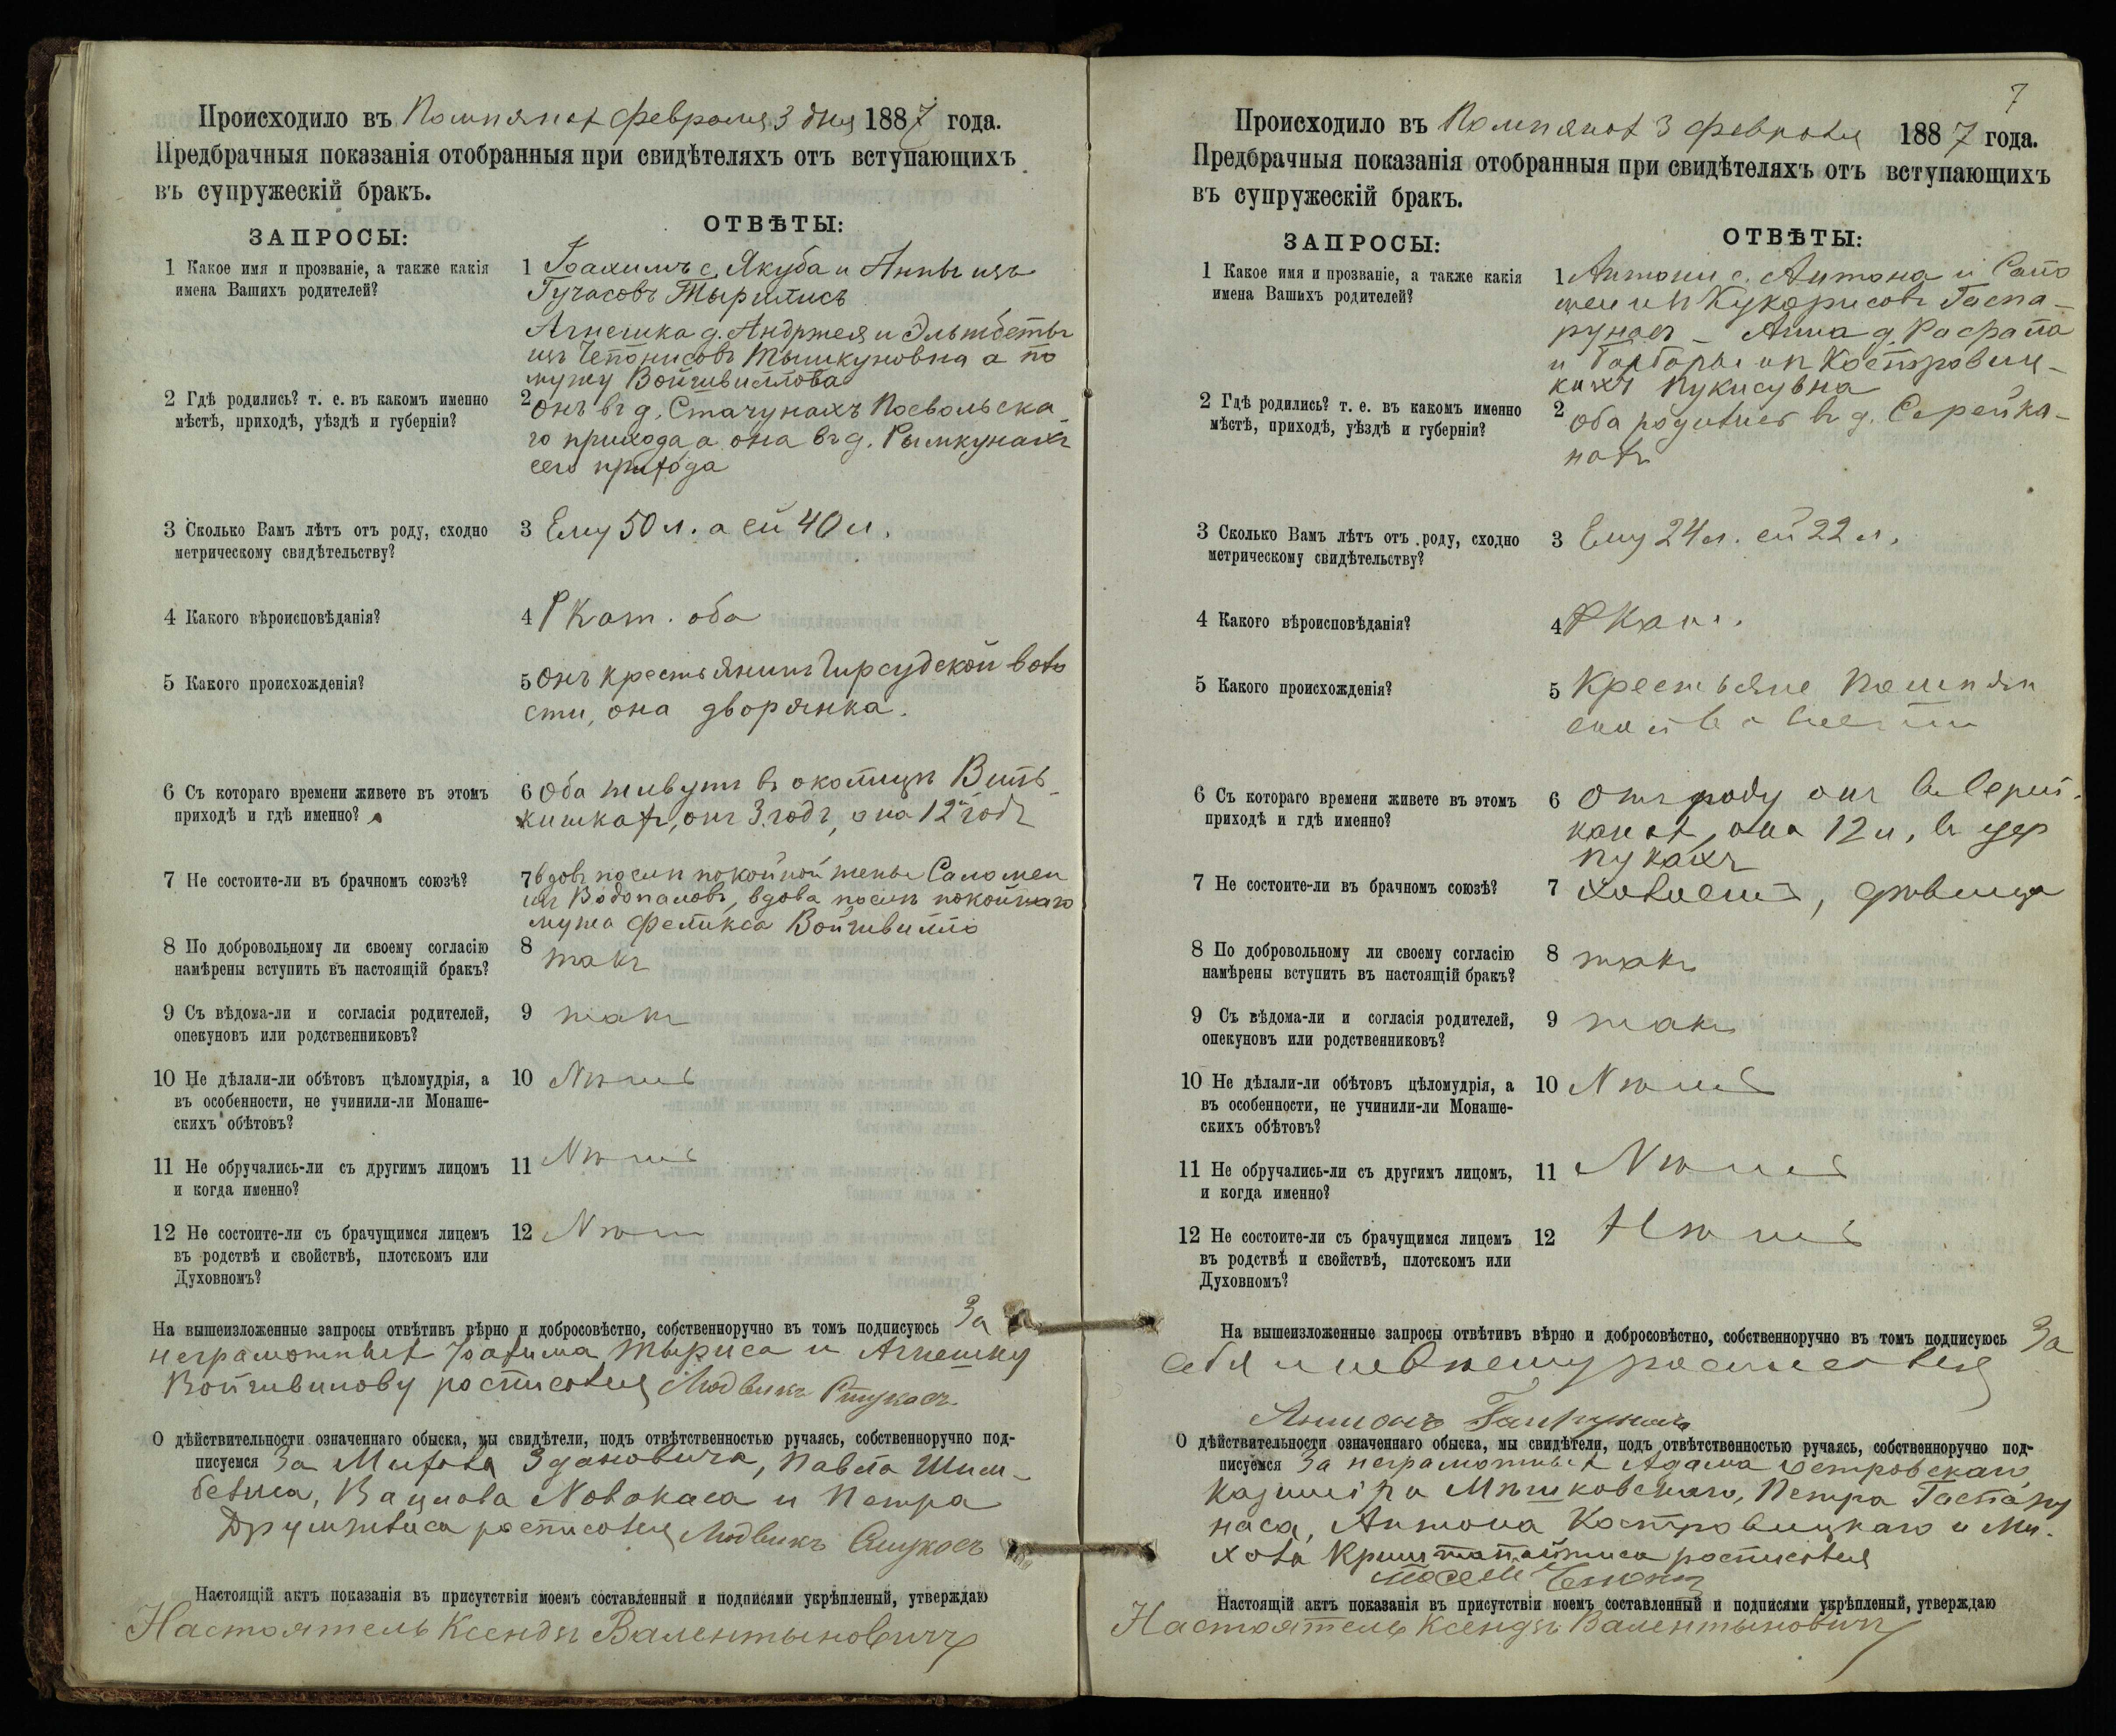 Происходило въ Помпянахъ февраля 3 дня 1887 года.
Предбрачныя показанія отобранныя при свидѣтеляхъ отъ вступающихъ
въ супружескій бракъ.
ЗАПРОСЫ:
ОТВѢТЫ:
1 Какое имя и прозваніе, а также какія
имена Вашихъ родителей?
1 Іоахимъ с. Якуба и Анны изъ
Гучасовъ Тырилисъ
Агнешка д. Андржея и Эльжбеты
изъ Чепонисовъ Тышкуновна а по
мужу Войшвиллова
2 Гдѣ родились? т. е. въ какомъ именно
мѣстѣ, приходѣ, уѣздѣ и губерніи?
2 Онъ въ д. Стачунахъ Посвольска-
го прихода а она въ д. Рымкунахъ
сего прихода
3 Сколько Вамъ лѣтъ отъ роду, сходно
метрическому свидѣтельству?
3 Ему 50 л. а ей 40 л.
4 Какого вѣроисповѣданія?
4 Р Кат. оба
5 Какого происхожденія?
5 Онъ крестьянинъ воло
сти, она дворянка.
6 Съ котораго времени живете въ этомъ
приходѣ и гдѣ именно?
6 Оба живутъ въ околицѣ Вить-
кишкахъ, онъ 3 годъ, она 12 годъ
7 Не состоите-ли въ брачномъ союзѣ?
7 вдовъ послѣ покойной жены Саломеи
изъ Водопаловъ, вдова послѣ покойнаго
мужа Феликса Войшвилло
8 По добровольному ли своему согласію
намѣрены вступить въ настоящій бракъ?
8 такъ
9 Съ вѣдома-ли и согласія родителей,
опекуновъ или родственниковъ?
9 такъ
10 Не дѣлали-ли обѣтовъ цѣломудрія, а
въ особенности, не учинили-ли Монаше-
скихъ обѣтовъ?
10 Nѣтъ
11 Не обручались-ли съ другимъ лицомъ
и когда именно?
11 Nѣтъ
12 Не состоите-ли съ брачущимся лицемъ
въ родствѣ и свойствѣ, плотскомъ или
Духовномъ?
12 Nѣтъ
На вышеизложенные запросы отвѣтивъ вѣрно и добросовѣстно, собственноручно въ томъ подписуюсь За
неграмотныхъ Іоахима и Агнешку
росписался Людвикъ
О дѣйствительности означеннаго обыска, мы свидѣтели, подъ отвѣтственностью ручаясь, собственноручно под-
писуемся За Михала Здановича, Павла Шим-
Вацлава Новакаса и Петра
росписался Людвикъ
Настоящій актъ показанія въ присутствіи моемъ составленный и подписями укрѣпленый, утверждаю
Настоятель Ксендзъ Валентыновичъ
7
Происходило въ Помпянахъ 3 февраля 1887 года.
Предбрачныя показанія отобранныя при свидѣтеляхъ отъ вступающихъ
въ супружескій бракъ.
ЗАПРОСЫ:
ОТВѢТЫ:
1 Какое имя и прозваніе, а также какія
имена Вашихъ родителей?
1 Антоній с. Антона и Сало
меи изъ Кукорисовъ Гаспа-
рунасъ - Анна д. Рафала
и Барбары изъ Костровиц-
кихъ
2 Гдѣ родились? т. е. въ какомъ именно
мѣстѣ, приходѣ, уѣздѣ и губерніи?
2 Оба родились въ д. Серейка-
нахъ
3 Сколько Вамъ лѣтъ отъ роду, сходно
метрическому свидѣтельству?
3 Ему 24 л. ей 22 л.
4 Какого вѣроисповѣданія?
4 Р Кат.
5 Какого происхожденія?
5 Крестьяне Помпян
ской волости
6 Съ котораго времени живете въ этомъ
приходѣ и гдѣ именно?
6 Отъ роду онъ въ Серей-
канахъ, она 12 л. въ
7 Не состоите-ли въ брачномъ союзѣ?
7 холостъ, дѣвица
8 По добровольному ли своему согласію
намѣрены вступить въ настоящій бракъ?
8 такъ
9 Съ вѣдома-ли и согласія родителей,
опекуновъ или родственниковъ?
9 такъ
10 Не дѣлали-ли обѣтовъ цѣломудрія, а
въ особенности, не учинили-ли Монаше-
скихъ обѣтовъ?
10 Nѣтъ
11 Не обручались-ли съ другимъ лицомъ,
и когда именно?
11 Nѣтъ
12 Не состоите-ли съ брачущимся лицемъ
въ родствѣ и свойствѣ, плотскомъ или
Духовномъ?
12 Нѣтъ
На вышеизложенные запросы отвѣтивъ вѣрно и добросовѣстно, собственноручно въ томъ подписуюсь За
себя и невѣсту росписался
О дѣйствительности означеннаго обыска, мы свидѣтели, подъ отвѣтственностью ручаясь, собственноручно под-
писуемся За неграмотныхъ Адама Петровскаго
Казиміра Мѣшковскаго, Петра Гаспару
наса, Антона Костровицкаго и Ми-
хала росписался
Настоящій актъ показанія въ присутствіи моемъ составленный и подписями укрѣпленый, утверждаю
Настоятель Ксендзъ Валентыновичъ